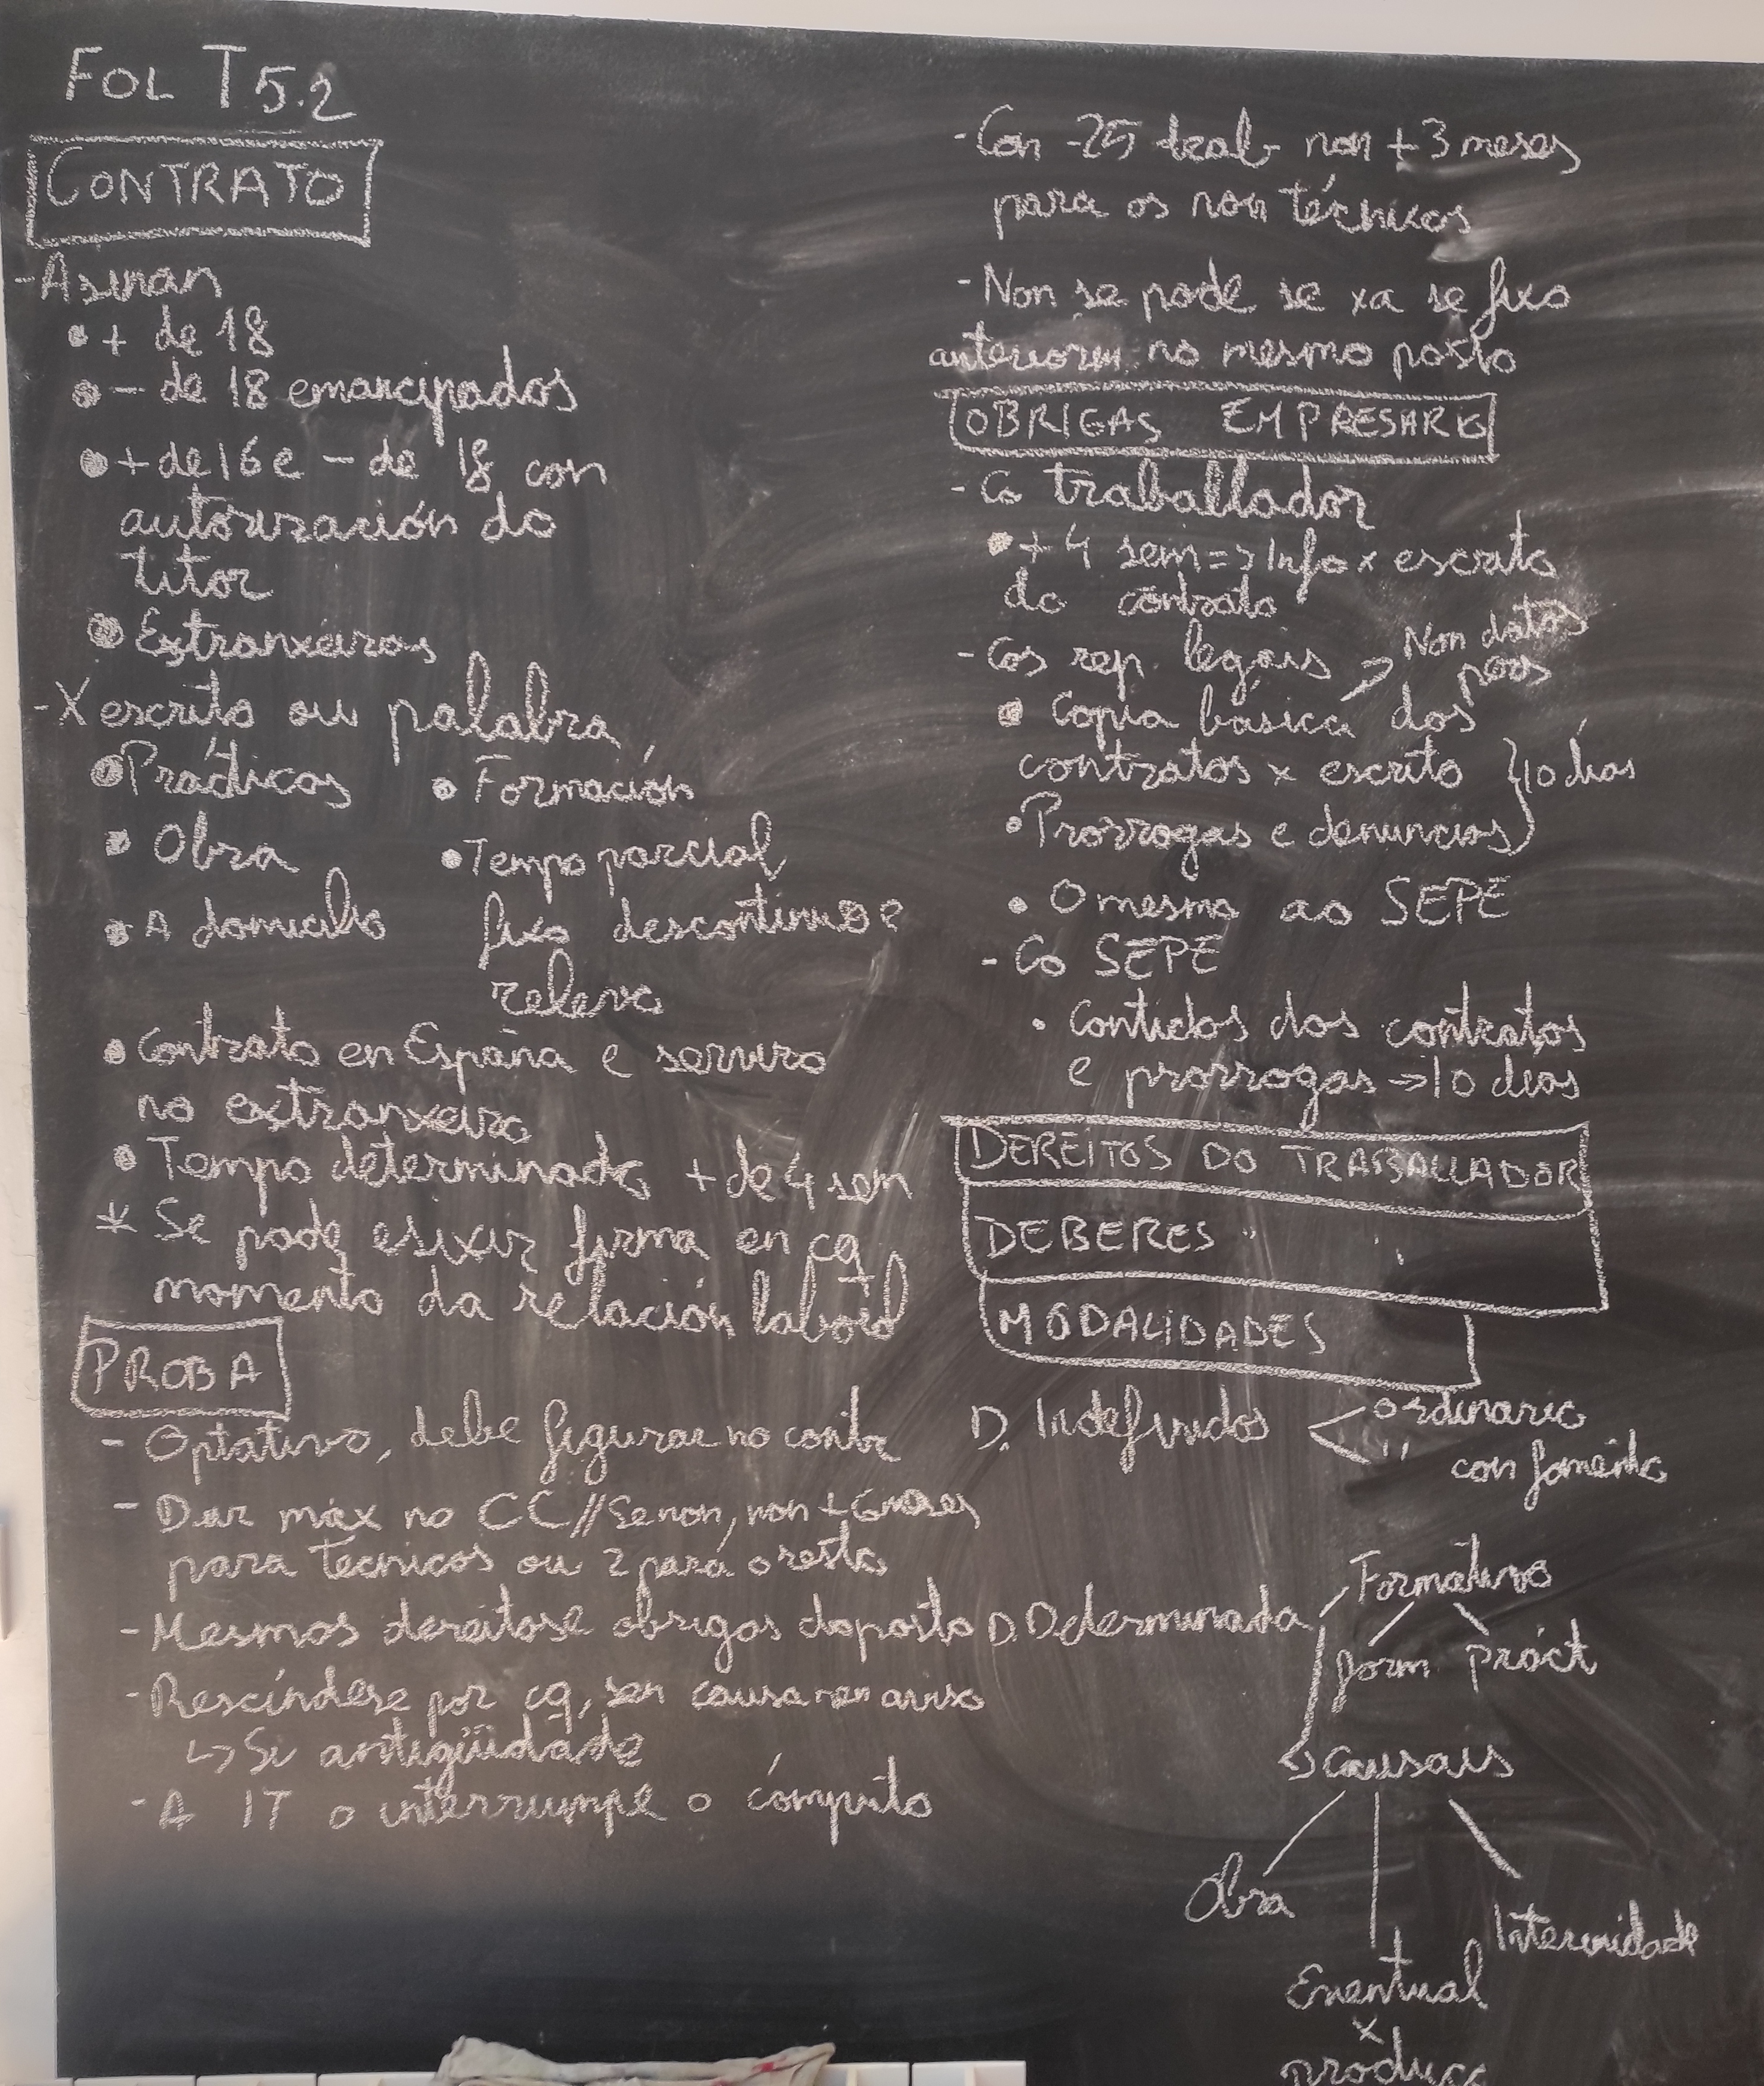 FOL T 5.2
CONTRATO
- Asinan
• + de 18
• - de 18 emancipados
• + de 16 e - de 18 con
autorización do
titor
• Extranxeiros
- X escrito ou palabra
• Prácticas • Formación
• Obra • Tempo parcial
• A domicilio fixo descontinuo e
relevo
• Contrato en España e servizo
no extranxeiro
• Tempo determinado + de 4 sem
* Se pode esixir firma en cq
momento da relación laboral
PROBA
- Optativo, debe figurar no contr
- Dur máx no CC // Se non, non + 6 meses
para técnicos ou 2 para o resto
- Mesmos dereitos e obrigas do posto
- Rescíndese por cq, sen causa nen aviso
↳ Si antigüidade
- A IT o interrumpe o cómputo
- Con -25 trab non + 3 meses
para os non técnicos
- Non se pode se xa se fixo
anteriorm. no mesmo posto
OBRIGAS EMPRESARIO
- Co traballador
• + 4 sem => Info x escrito
do contrato
- Cos rep. legais → Non datos
pers
• Copia básica dos
contratos x escrito } 10 días
• Prórrogas e denuncias
• O mesmo ao SEPE
- Co SEPE
• Contidos dos contratos
e prórrogas -> 10 días
DEREITOS DO TRABALLADOR
DEBERES " "
MODALIDADES
D. Indefinidos < ordinario
" con fomento
Formativo
D. Determinada
form práct
↳ Causais
Obra
Interinidade
Eventual
x
produc